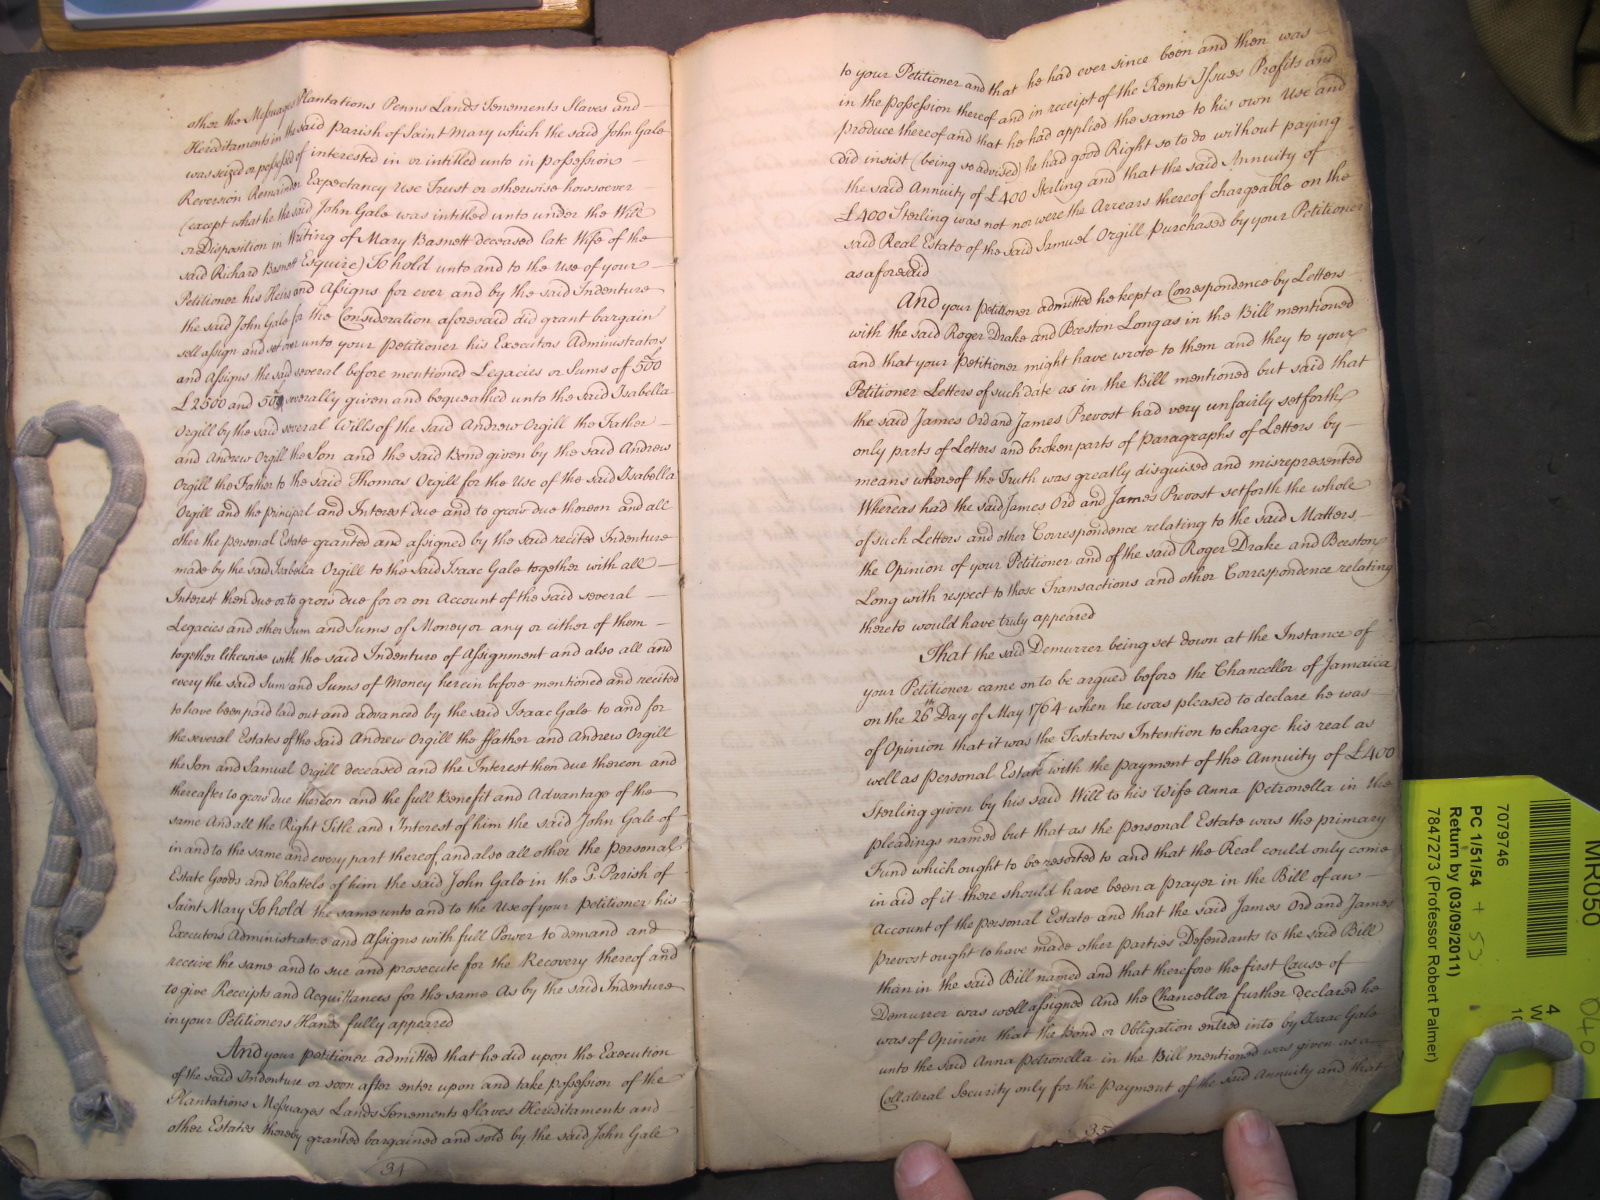 other the Messuages Plantations Penns Lands Tenements Slaves and
Hereditaments in the said Parish of Saint Mary which the said John Gale
was seized or possessed of interested in or intitled unto in possession
Reversion Remainder Expectancy Use Trust or otherwise howsoever
(except what he the said John Gale was intitled unto under the Will
or Disposition in Writing of Mary Basnett deceased late Wife of the
said Richard Basnett Esquire) To hold unto and to the Use of your
Petitioner his Heirs and Assigns for ever and by the said Indenture
the said John Gale for the Consideration aforesaid did grant bargain
sell assign and set over unto your Petitioner his Executors Administrators
and Assigns the said several before mentioned Legacies or Sums of 500
£2500 and 500 severally given and bequeathed unto the said Isabella
Orgill by the said several Wills of the said Andrew Orgill the Father
and Andrew Orgill the Son and the said Bond given by the said Andrew
Orgill the Father to the said Thomas Orgill for the Use of the said Isabella
Orgill and the principal and Interest due and to grow due thereon and all
other the personal Estate granted and assigned by the said recited Indenture
made by the said Isabella Orgill to the said Isaac Gale together with all
Interest then due or to grow due for or on Account of the said several
Legacies and other Sum and Sums of Money or any or either of them
together likewise with the said Indenture of Assignment and also all and
every the said Sum and Sums of Money herein before mentioned and recited
to have been paid laid out and advanced by the said Isaac Gale to and for
the several Estates of the said Andrew Orgill the ffather and Andrew Orgill
the Son and Samuel Orgill deceased and the Interest then due thereon and
thereafter to grow due thereon and the full Benefit and Advantage of the
same And all the Right Title and Interest of him the said John Gale of
in and to the same and every part thereof, and also all other the personal
Estate Goods and Chattels of him the said John Gale in the sd. Parish of
Saint Mary To hold the same unto and to the Use of your Petitioner his
Executors Administrators and Assigns with full Power to demand and
receive the same and to sue and prosecute for the Recovery thereof and
to give Receipts and Acquittances for the same As by the said Indenture
in your Petitioners Hands fully appeared
And your petitioner admitted that he did upon the Execution
of the said Indenture or soon after enter upon and take possession of the
Plantations Messuages Lands Tenements Slaves Hereditaments and
other Estates thereby granted bargained and sold by the said John Gale
34
to your Petitioner and that he had ever since been and then was
in the possession thereof and in receipt of the Rents Issues Profits and
produce thereof and that he had applied the same to his own Use and
did insist (being so advised) he had good Right so to do without paying
the said Annuity of £400 Sterling and that the said Annuity of
£400 Sterling was not nor were the Arrears thereof chargeable on the
said Real Estate of the said Samuel Orgill purchased by your Petitioner
as aforesaid
And your petitioner admitted he kept a Correspondence by Letters
with the said Roger Drake and Beeston Long as in the Bill mentioned
and that your Petitioner might have wrote to them and they to your
Petitioner Letters of such date as in the Bill mentioned but said that
the said James Ord and James Prevost had very unfairly setforth
only parts of Letters and broken parts of paragraphs of Letters by
means whereof the Truth was greatly disguised and misrepresented
Whereas had the said James Ord and James Prevost setforth the whole
of such Letters and other Correspondence relating to the said Matters
the Opinion of your Petitioner and of the said Roger Drake and Beeston
Long with respect to those Transactions and other Correspondence relating
thereto would have truly appeared
That the said Demurrer being set down at the Instance of
your Petitioner came on to be argued before the Chancellor of Jamaica
on the 26th Day of May 1764 when he was pleased to declare he was
of Opinion that it was the Testators Intention to charge his real as
well as personal Estate with the payment of the Annuity of £400
Sterling given by his said Will to his Wife Anna Petronella in the
pleadings named but that as the personal Estate was the primary
Fund which ought to be resorted to and that the Real could only come
in aid of it there should have been a prayer in the Bill of an
Account of the personal Estate and that the said James Ord and James
Prevost ought to have made other parties Defendants to the said Bill
than in the said Bill named and that therefore the first Cause of
Demurrer was well assigned And the Chancellor further declared he
was of Opinion that the Bond or Obligation entred into by Isaac Gale
unto the said Anna Petronella in the Bill mentioned was given as a
Collateral Security only for the payment of the said Annuity and that
35
MR050
7079746
PC 1/51/54 + 53
Return by (03/09/2011)
7847273 (Professor Robert Palmer)
040
4